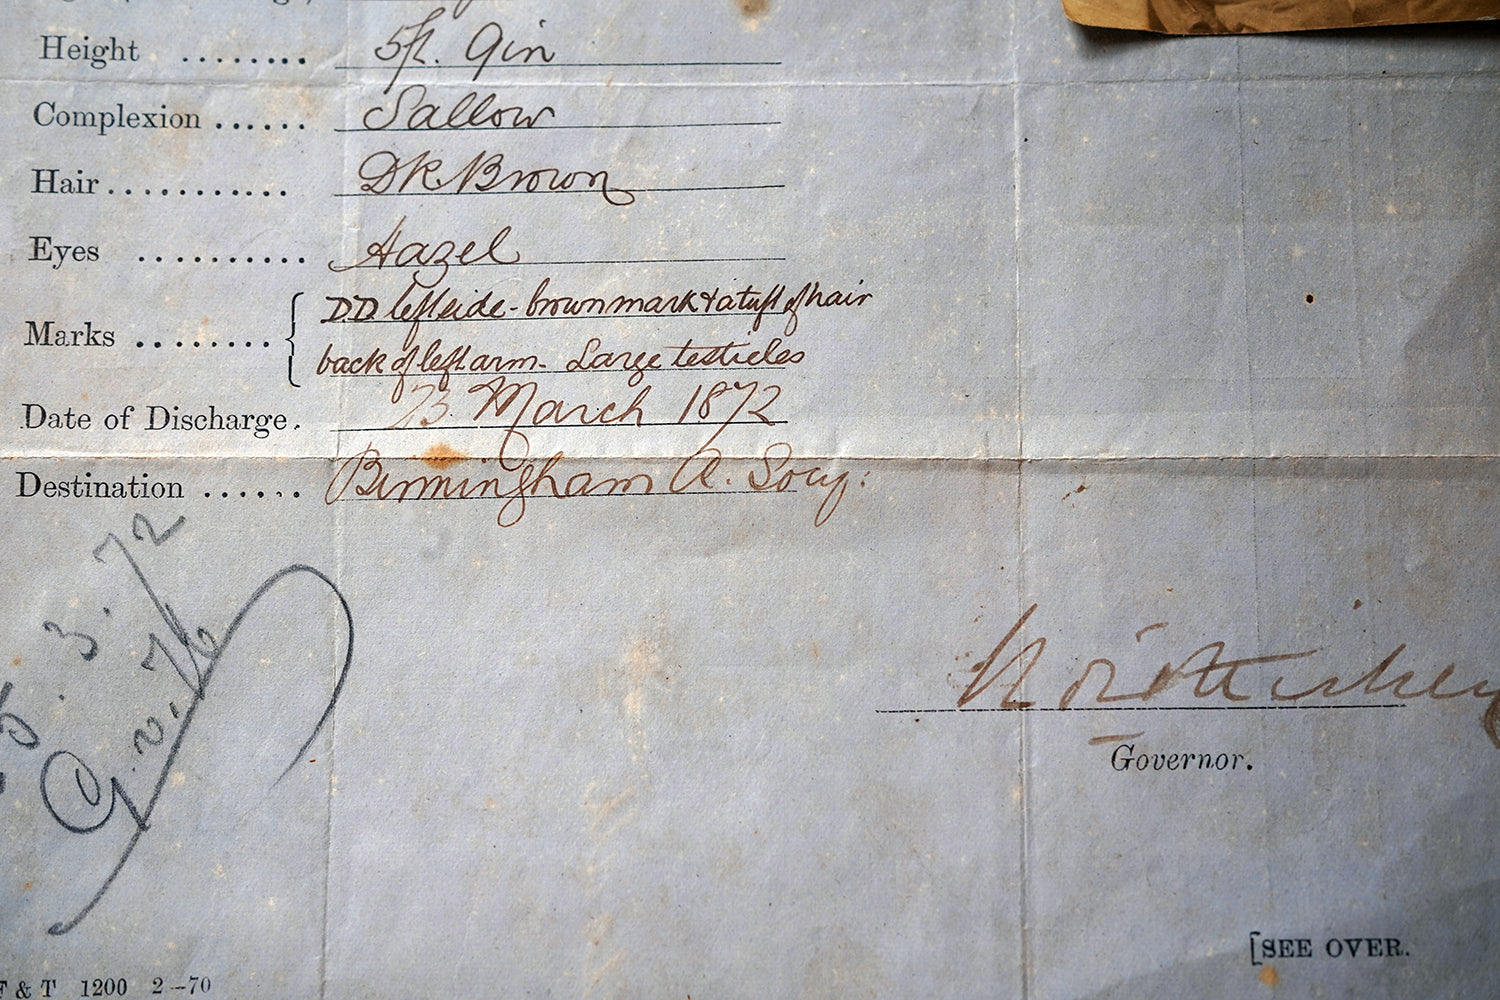 Height ........ 5ft. 9in
Complexion ...... Sallow
Hair ........... DK Brown
Eyes .......... Hazel
Marks ........ { D.D left side - brown mark & a tuft of hair
back of left arm - Large testicles
Date of Discharge. 23 March 1872
Destination ...... Birmingham A. Socy:
5. 3. /72
Governor.
[SEE OVER.
F & T 1200 2-70